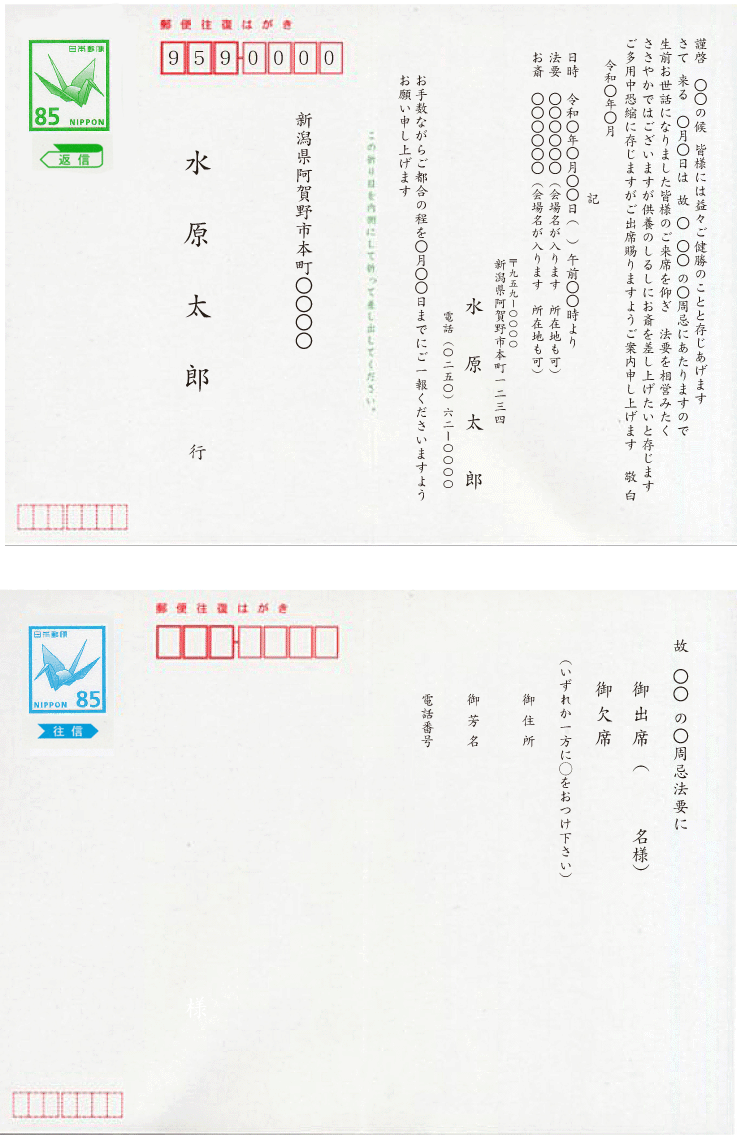 謹啓　〇〇の候　皆様には益々ご健勝のことと存じあげます
さて　来る　〇月〇日は　故　〇　〇〇　の〇周忌にあたりますので
生前お世話になりました皆様のご来席を仰ぎ　法要を相営みたく
ささやかではございますが供養のしるしにお斎を差し上げたいと存じます
ご多用中恐縮に存じますがご出席賜りますようご案内申し上げます　敬白
令和〇年〇月
記
日時　令和〇年〇月〇〇日（　）午前〇〇時より
法要　〇〇〇〇〇（会場名が入ります　所在地も可）
お斎　〇〇〇〇〇〇（会場名が入ります　所在地も可）
〒九五九ー〇〇〇〇
新潟県阿賀野市本町一二三四
水原太郎
電話（〇二五〇）六二ー〇〇〇〇
お手数ながらご都合の程を〇月〇〇日までにご一報くださいますよう
お願い申し上げます
この折り目を内側にして折って差し出してください。
郵便往復はがき
959-0000
日本郵便
85 NIPPON
返信
新潟県阿賀野市本町〇〇〇〇
水原太郎　行
故　〇〇　の〇周忌法要に
御出席（　　名様）
御欠席
（いずれか一方に〇をおつけ下さい）
御住所
御芳名
電話番号
郵便往復はがき
日本郵便
NIPPON 85
往信
様